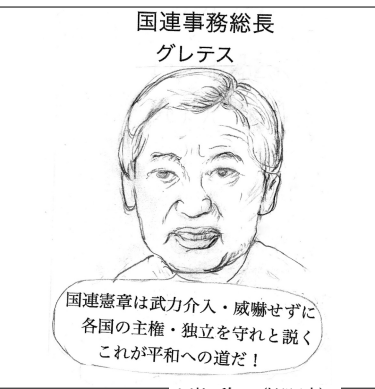 国連事務総長
グレテス
国連憲章は武力介入・威嚇せずに
各国の主権・独立を守れと説く
これが平和への道だ！